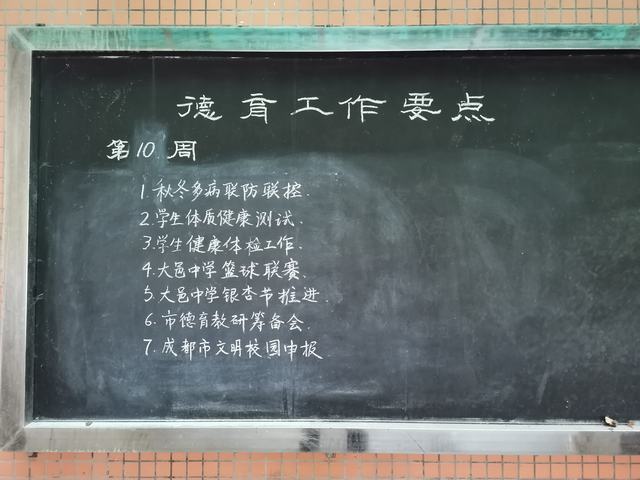 德育工作要点
第10周
1.秋冬多病联防联控.
2.学生体质健康测试.
3.学生健康体检工作.
4.大邑中学篮球联赛.
5.大邑中学银杏节推进.
6.市德育教研筹备会.
7.成都市文明校园申报